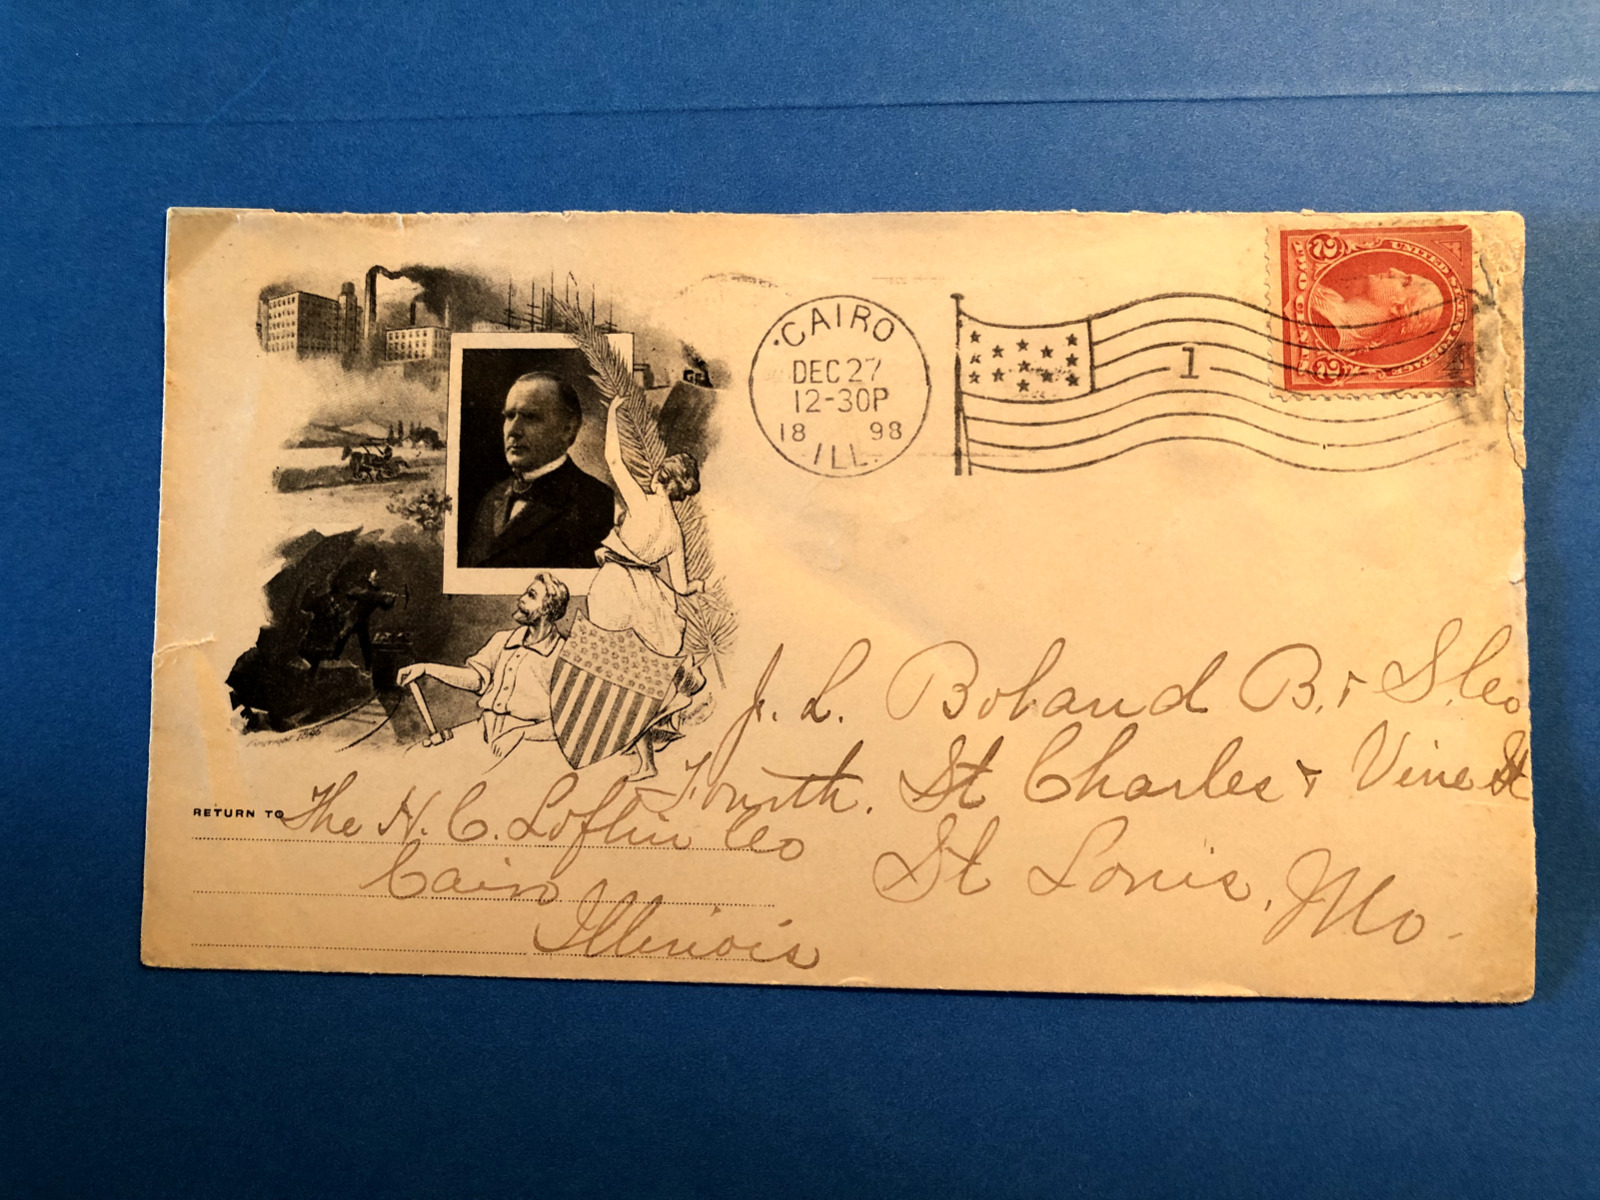 CAIRO
DEC 27
12-30P
18 98
ILL.
1
UNITED STATES POSTAGE
TWO CENTS
2 2
J. L. Boland B. & S. Co
Fourth. St Charles & Vine St
St Louis, Mo.
RETURN TO The H. C. Loflin Co
Cairo
Illinois